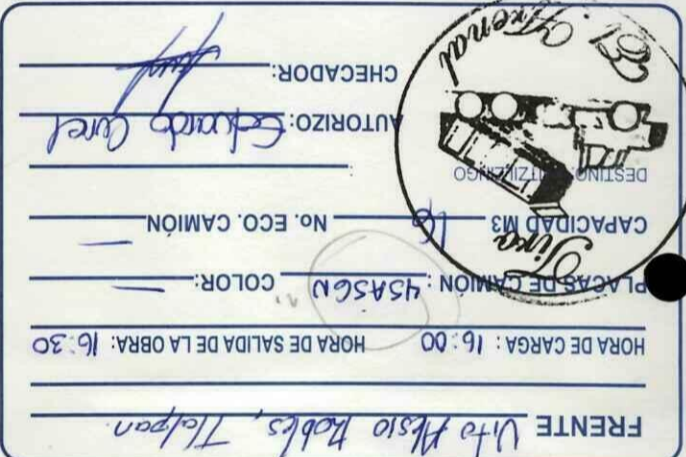 FRENTE Vito Alesio Robles, Tlalpan.
HORA DE CARGA: 16:00 HORA DE SALIDA DE LA OBRA: 16:30
PLACAS DE CAMIÓN: 45AS6N COLOR: —
CAPACIDAD M3 16 No. ECO. CAMIÓN —
DESTINO:
AUTORIZO: Eduardo
CHECADOR:
Tiro
El Arenal